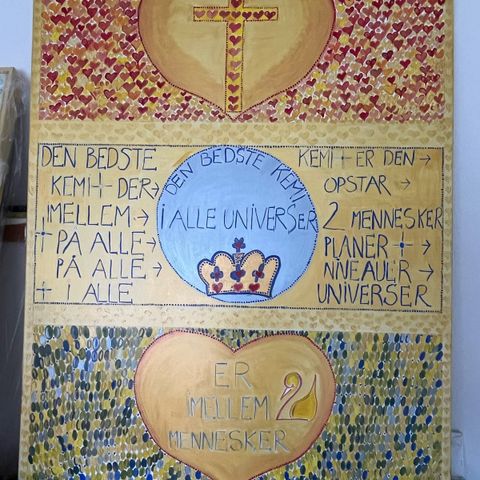 DEN BEDSTE KEMI + ER DEN →
KEMI + DER → OPSTAR →
MELLEM → 2 MENNESKER
+ PA ALLE → PLANER + →
PÅ ALLE → NIVEAUER →
+ I ALLE UNIVERSER
DEN BEDSTE KEMI,
I ALLE UNIVERSER
ER
IMELLEM 2
MENNESKER